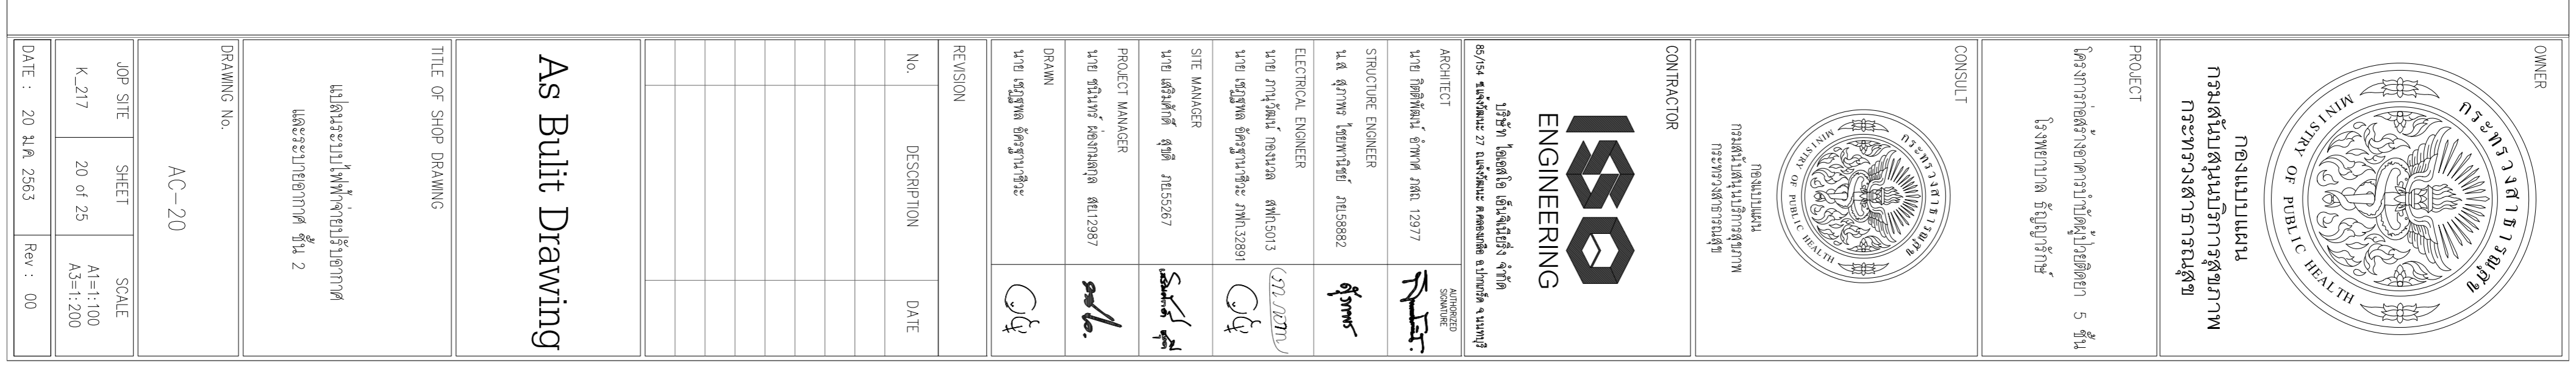 OWNER
กระทรวงสาธารณสุข
MINISTRY OF PUBLIC HEALTH
กองแบบแผน
กรมสนับสนุนบริการสุขภาพ
กระทรวงสาธารณสุข
PROJECT
โครงการก่อสร้างอาคารบำบัดผู้ป่วยติดยา 5 ชั้น
โรงพยาบาล ธัญญารักษ์
CONSULT
กระทรวงสาธารณสุข
MINISTRY OF PUBLIC HEALTH
กองแบบแผน
กรมสนับสนุนบริการสุขภาพ
กระทรวงสาธารณสุข
CONTRACTOR
ISO
ENGINEERING
บริษัท ไอเอสโอ เอ็นจิเนียริ่ง จำกัด
85/154 ซ.แจ้งวัฒนะ 27 ถ.แจ้งวัฒนะ ต.คลองเกลือ อ.ปากเกร็ด จ.นนทบุรี
ARCHITECT
AUTHORIZED SIGNATURE
นาย กิตติพัฒน์ อำพาศ ภสถ 12977
STRUCTURE ENGINEER
น.ส. สุภาพร ไชยพาณิชย์ ภย.58882
สุภาพร
ELECTRICAL ENGINEER
นาย ภานุวัฒน์ กองนวล สฟก.5013
นาย เชฎฐพล อัครฐานาชีวะ ภฟก.32891
SITE MANAGER
นาย เสริมศักดิ์ สุขดี ภย.55267
PROJECT MANAGER
นาย ชนินทร์ ผ่องกมลกุล สย.12987
DRAWN
นาย เชฎฐพล อัครฐานาชีวะ
REVISION
No. DESCRIPTION DATE
As Bulit Drawing
TITLE OF SHOP DRAWING
แปลนระบบไฟฟ้าจ่ายปรับอากาศ
และระบายอากาศ ชั้น 2
DRAWING No.
AC-20
JOP SITE SHEET SCALE
K_217 20 of 25 A1=1:100
A3=1:200
DATE : 20 ม.ค. 2563 Rev : 00